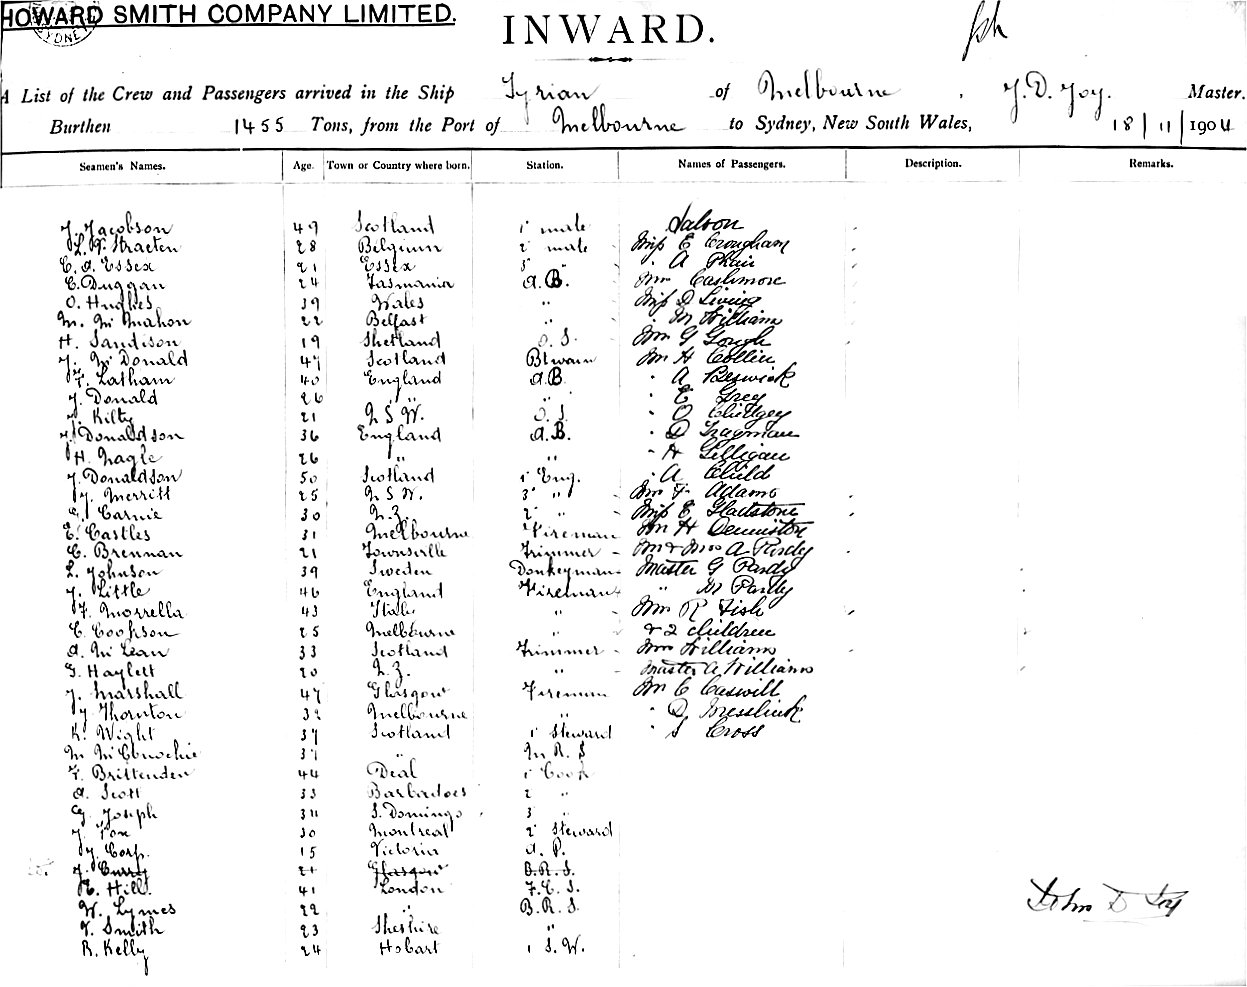 HOWARD SMITH COMPANY LIMITED.
SYDNEY
INWARD.
A List of the Crew and Passengers arrived in the Ship Tyrian of Melbourne, J. D. Joy. Master.
Burthen 1455 Tons, from the Port of Melbourne to Sydney, New South Wales, 18/11/1904
Seamen's Names. Age. Town or Country where born. Station. Names of Passengers. Description. Remarks.
J. Jacobson 49 Scotland 1st mate Saloon
28 Belgium 2 mate Miss E
C. A. Essex 21 Essex 3 " " A Phair
C. Duggan 24 Tasmania A.B. Mrs Cashmore
O. Hughes 39 Wales " Miss D
M. McMahon 22 Belfast " " M William
H. Sandison 19 Shetland O.S. G Gough
J. McDonald 47 Scotland Btswain Mr H Collin
F. Latham 40 England A.B. " A Beswick
J. Donald 26 " " " E Grey
J. Kilty 21 N S W. O.S. " O
J. Donaldson 36 England A.B. " D
H. Nagle 26 " " " H Gilligan
J. Donaldson 50 Scotland 1 Eng. " A Child
J. Merritt 25 N S W. 3 " " Adams
G. Carnie 30 N.Z. 2 " Miss E Gladstone
E. Castles 31 Melbourne Fireman Mr H Denniston
C. Brennan 21 Townsville Trimmer Mr & Mrs A Pardy
L. Johnson 39 Sweden Donkeyman Master G Pardy
J. Little 46 England Fireman " M Pardy
F. Morrella 43 Italy " Mrs R Fish
C. Cookson 25 Melbourne " & 2 children
A. McLean 33 Scotland Trimmer Mrs Williams
G. Haylett 20 N.Z. " Master A Williams
J. Marshall 47 Glasgow Fireman Mr C Caswill
J. Thornton 32 Melbourne " " D
K. Wight 37 Scotland 1 Steward " S Cross
M. McConochie 37 " M R S
F. Brittenden 44 Deal 1 Cook
A. Scott 33 Barbadoes 2 "
G. Joseph 34 S. Domingo 3 "
J. Fox 30 Montreal 2 Steward
J. Corp. 15 Victoria A. P.
J. Curry 21 Glasgow B.R.S.
E. Hill. 41 London F.C.S.
W. Lymes 22 " B.R.S.
V. Smith 23 Sheshire "
R. Kelly 24 Hobart 1 S.W.
John D Joy